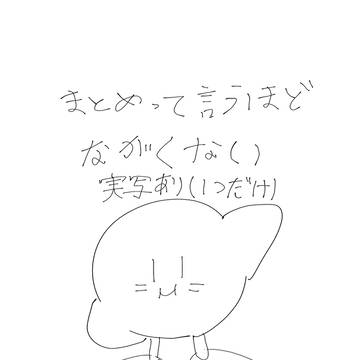 まとめって言うほど
ながくない
実写あり(1つだけ)